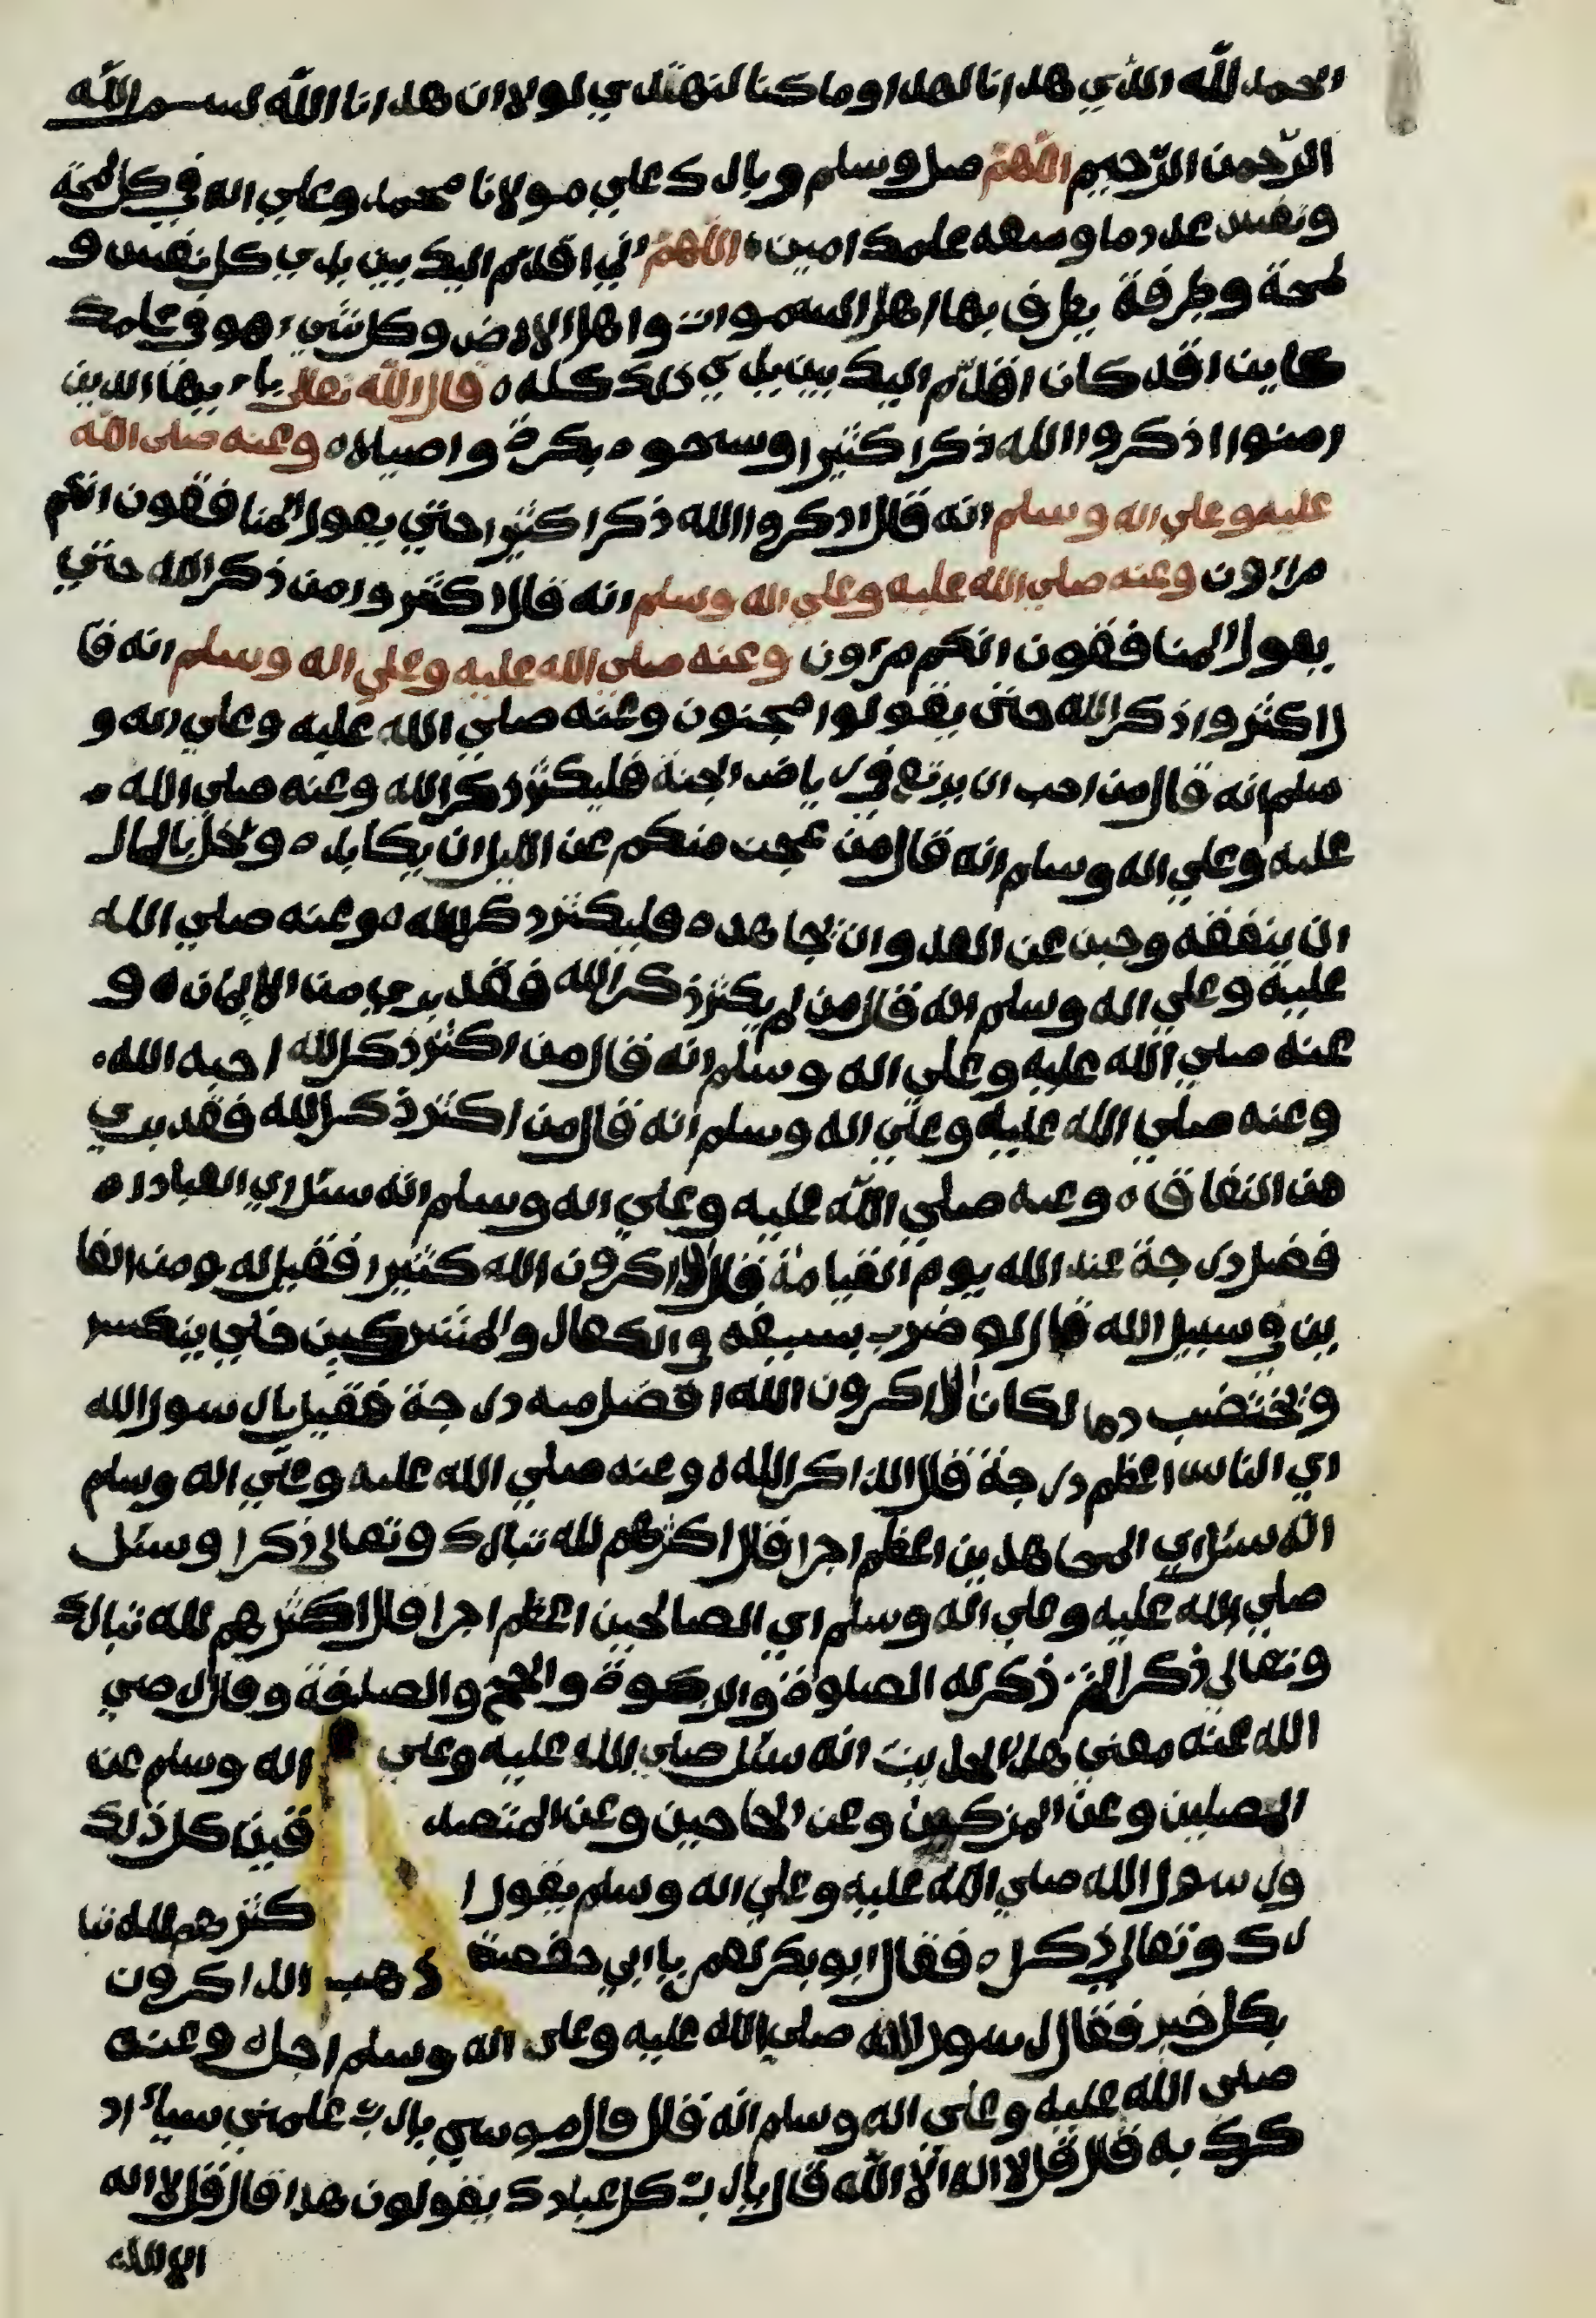 الحمد لله الذي هدانا لهذا وما كنا لنهتدي لولا ان هدانا الله بسم الله
الرّحمن الرّحيم اللهمّ صل وسلم وبارك علي مولانا محمد وعلي اله في كل لمحة
ونفس عدد ما وسعه علمك امين اللهمّ اني اقدّم اليك بين يدي كل نفس و
لمحة وطرفة يطرف بها اهل السموات واهل الارض وكل شيء هو في علمك
كاين اقد كان اقدّم اليك بين يدي ذلك كله قال الله تعالى ياءيها الذين
امنوا اذكروا الله ذكرا كثيرا وسبحوه بكرة واصيلا وعنه صلى الله
عليه وعلي اله وسلم انه قال اذكروا الله ذكرا كثيرا حتي يقول المنافقون انكم
مراءون وعنه صلي الله عليه وعلي اله وسلم انه قال اكثروا من ذكر الله حتي
يقول المنافقون انكم مراءون وعنه صلى الله عليه وعلي اله وسلم انه قا
ل اكثروا ذكر الله حتى يقولوا مجنون وعنه صلي الله عليه وعلي اله و
سلم انه قال من احب ان يرتع في رياض الجنة فليكثر ذكر الله وعنه صلى الله
عليه وعلي اله وسلم انه قال من عجز منكم عن الليل ان يكابده وبخل بالمال
ان ينفقه وجبن عن العدو ان يجاهده فليكثر ذكر الله وعنه صلي الله
عليه وعلي اله وسلم انه قال من لم يكثر ذكر الله فقد بري من الايمان و
عنه صلي الله عليه وعلي اله وسلم انه قال من اكثر ذكر الله احبه الله
وعنه صلي الله عليه وعلي اله وسلم انه قال من اكثر ذكر الله فقد بري
من النفاق وعنه صلي الله عليه وعلي اله وسلم انه سئل اي العباد ا
فضل درجة عند الله يوم القيامة قال الذاكرون الله كثيرا فقيل له ومن الغا
ين في سبيل الله قال لو ضرب بسيفه في الكفار والمشركين حتي ينكسر
ويختضب دما لكان الذاكرون الله افضل منه درجة فقيل يارسول الله
اي الناس اعظم درجة قال الذاكر الله وعنه صلي الله عليه وعلي اله وسلم
انه سئل اي المجاهدين اعظم اجرا قال اكثرهم لله تبارك وتعالى ذكرا وسئل
صلي الله عليه وعلي اله وسلم اي الصالحين اعظم اجرا قال اكثرهم لله تبارك
وتعالي ذكرا ثم ذكر له الصلوة والزكوة والحج والصدقة وقال رضي
الله عنه معنى هذا الحديث انه سئل صلي الله عليه وعلي اله وسلم عن
المصلين وعن المزكين وعن الحاجين وعن المتصد قين كل ذلك
ورسول الله صلي الله عليه وعلي اله وسلم يقول ا كثرهم لله تبا
رك وتعالي ذكرا فقال ابو بكر لعمر يا ابي حفصة ذهب الذاكرون
بكل خير فقال رسول الله صلي الله عليه وعلى اله وسلم اجل وعنه
صلى الله عليه وعلى اله وسلم انه قال قال موسى يارب علمني سيا اد
كرك به قال قل لا اله الا الله قال يارب كل عبادك يقولون هذا قال قل لا اله
الا الله